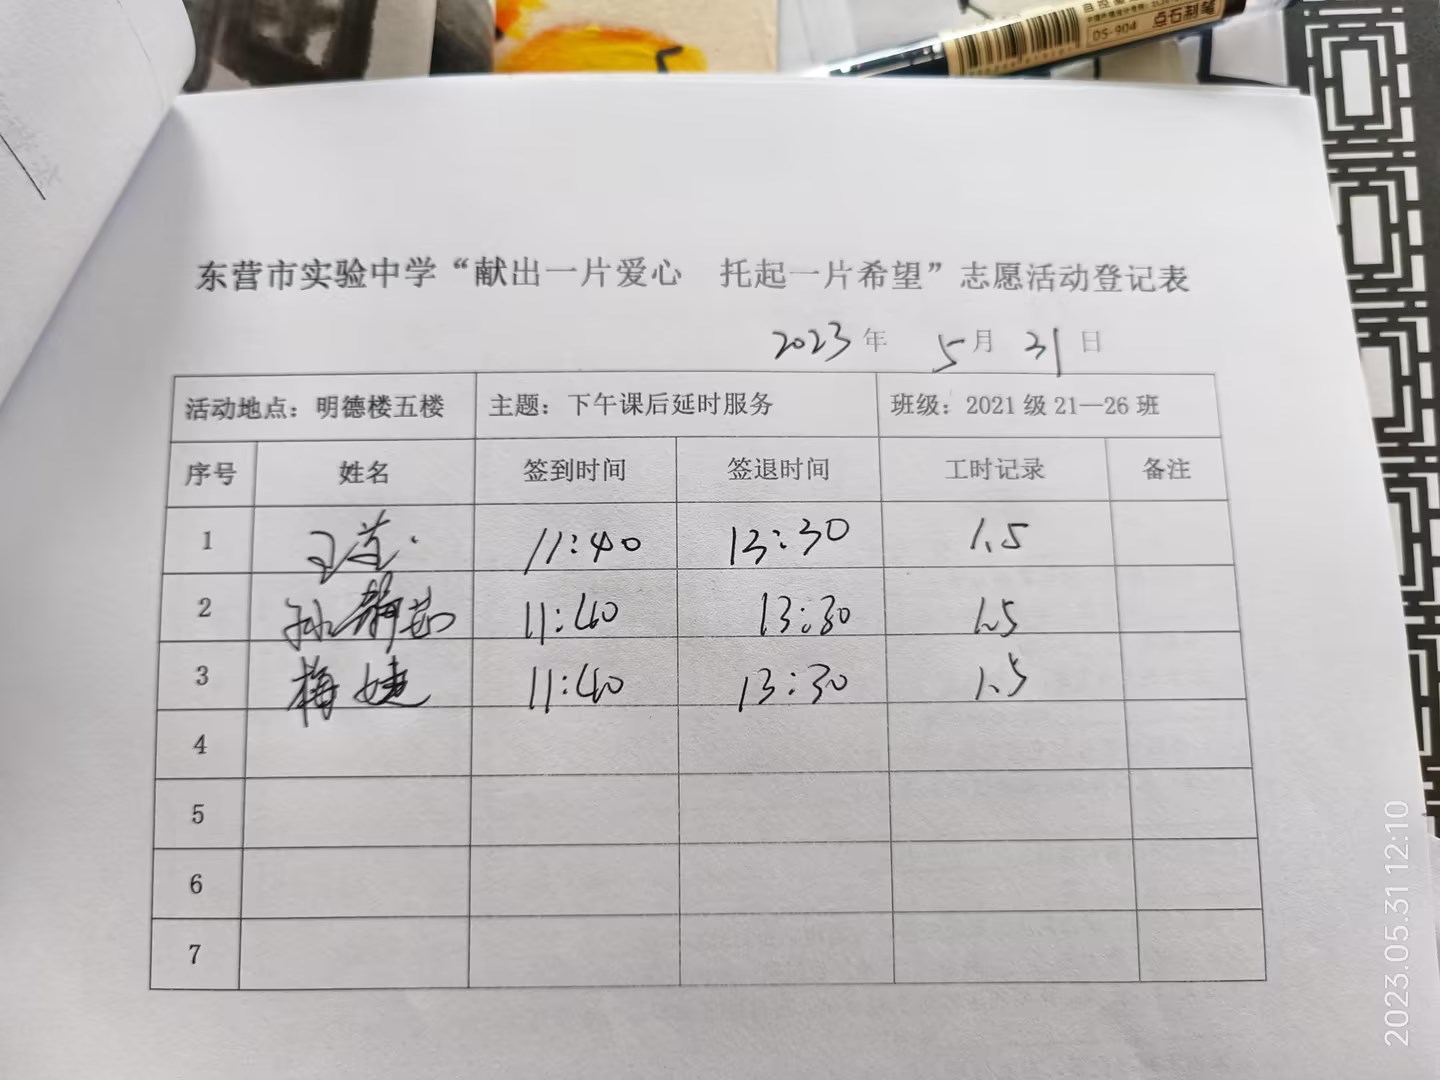 点石制笔
DS-904
东营市实验中学“献出一片爱心 托起一片希望”志愿活动登记表
2023 年 5 月 31 日
活动地点：明德楼五楼 主题：下午课后延时服务 班级：2021 级 21—26 班
序号 姓名 签到时间 签退时间 工时记录 备注
1 11:40 13:30 1.5
2 孙 11:40 13:30 1.5
3 梅婕 11:40 13:30 1.5
4
5
6
7
2023.05.31 12:10